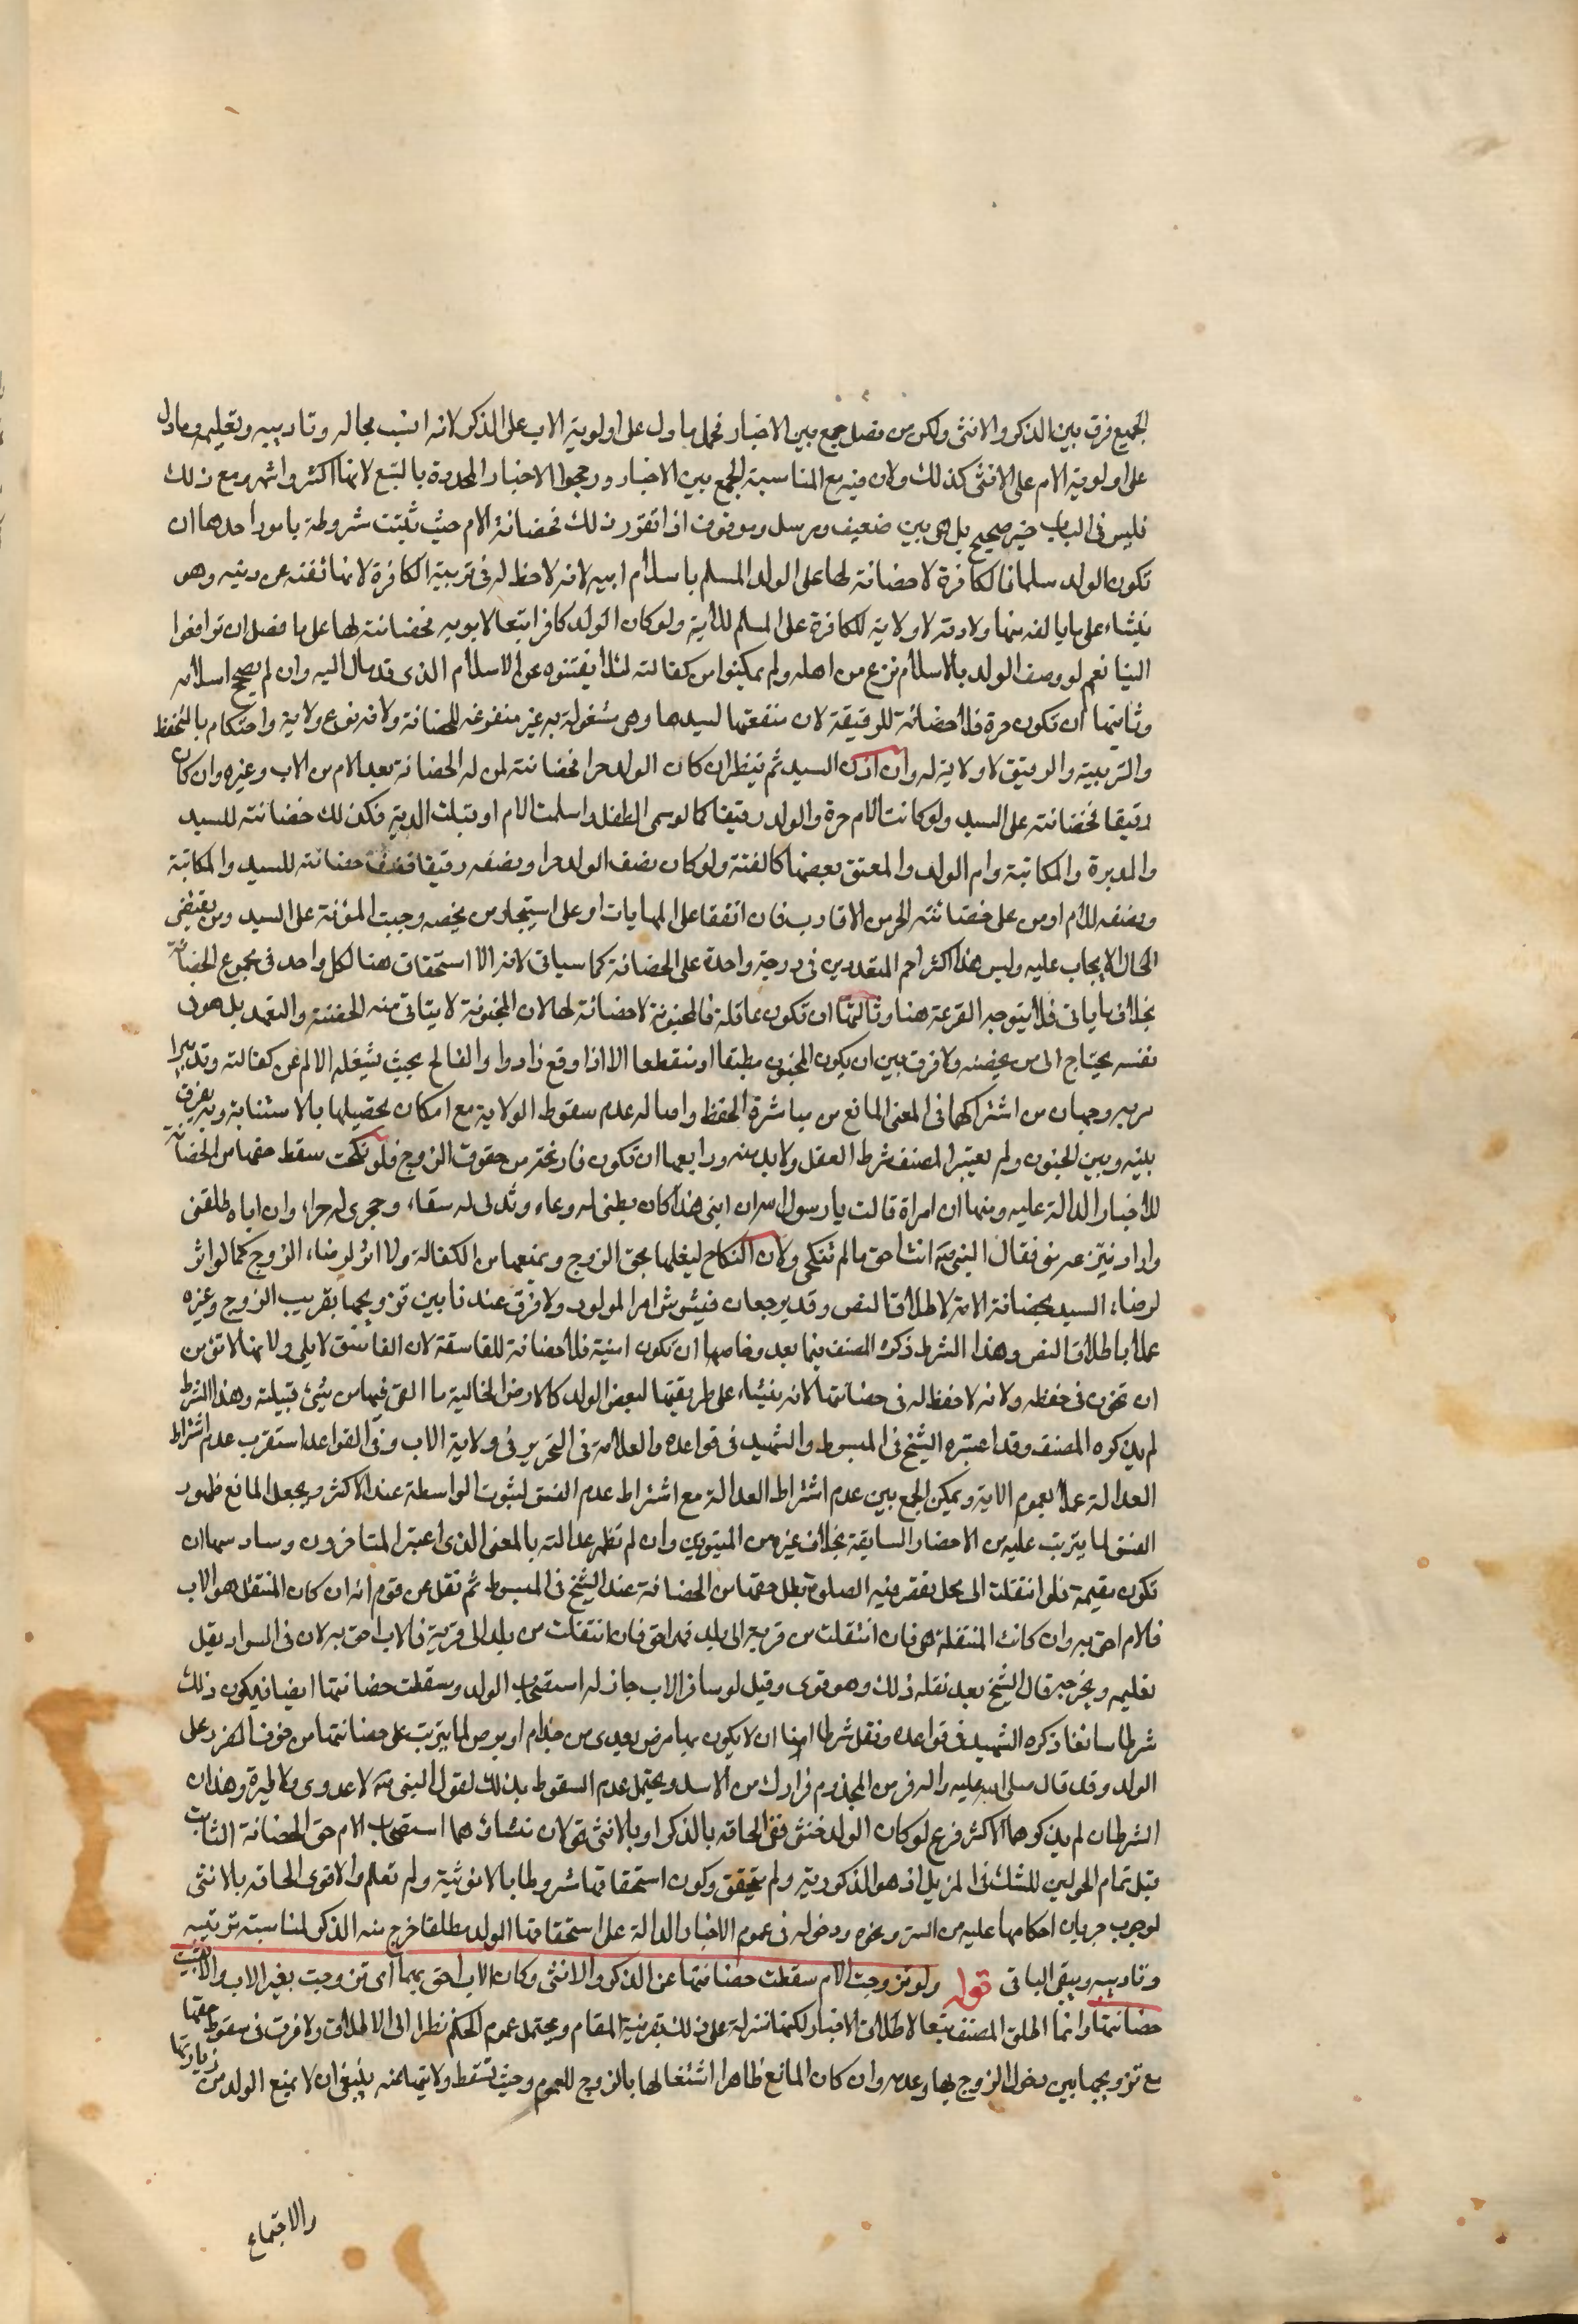 الجميع فرق بين الذكر والانثى ولكن من فصل جمع بين الاخبار فحمل ما دل على اولوية الاب على الذكر لانه انسب بحاله وتاديبه وتعليمه وما دل
على اولوية الام على الانثى كذلك ولان فيه مع المناسبة الجمع بين الاخبار ورجحوا الاخبار المحدودة بالسبع لانها اكثر واشهر ومع ذلك
فليس في الباب خبر صحيح بل هي بين ضعيف ومرسل وموقوف اذا تقرر ذلك فحضانة الام حيث ثبتت شروطة بامور احدها ان
تكون الولد مسلما فالكافرة لا حضانة لها على الولد المسلم باسلام ابيه لانه لاحظ له في تربية الكافرة لانها تفتنه عن دينه وهو
ينشاء على ما يالفه منها ولادته لا ولاية للكافرة على المسلم للاية ولو كان الولد كافرا تبعا لابويه فحضانته لها على ما فصل ان توافعوا
الينا نعم لو وصف الولد بالاسلام نزع من اهله ولم يمكنوا من كفالته لئلا يفتنوه عن الاسلام الذي قد مال اليه وان لم يصح اسلامه
وثانيها ان تكون حرة فلا حضانة للرقيقة لان منفعتها لسيدها وهي مشغولة به غير متفرغة للحضانة ولانه نوع ولاية واحتكام بالتحفظ
والتربية والرقيق لا ولاية له وان اذن السيد ثم ينظر ان كان الولد حرا فحضانته لمن له الحضانة بعد الام من الاب وغيره وان كان
رقيقا فحضانته على السيد ولو كانت الام حرة والولد رقيقا كما لو سبي الطفل واسلمت الام او قبلت الذمة فكذلك حضانته للسيد
والمدبرة والمكاتبة وام الولد والمعتق بعضها كالقنة ولو كان نصف الولد حرا ونصفه رقيقا فنصف حضانته للسيد والمكاتبة
ونصفه للام او من على حضانته الحر من الاقارب فان اتفقا على المهايات او على استيجار من يحضنه وجبت المؤنة على السيد ومن يقتضي
الحال الايجاب عليه وليس هذا كتزاحم المتعددين في درجة واحدة على الحضانة كما سياتي لانه الا استحقاق هنا لكل واحد في مجموع الحضانة
بخلاف ما ياتي فلا يتوجه القرعة هنا وثالثها ان تكون عاقلة فالمجنونة لا حضانة لها لان المجنونة لا يتاتى منه الحفظ والتعهد بل هو في
نفسه يحتاج الى من يحضنه ولا فرق بين ان يكون الجنون مطبقا او منقطعا الا اذا وقع نادرا والفالج بحيث يشغله الالم عن كفالته وتدبير
مربيه وجهان من اشتراكهما في المعنى المانع من مباشرة الحفظ واصالة عدم سقوط الولاية مع امكان تحصيلها بالاستنابة وبه يفرق
بينه وبين الجنون ولم يعتبر المصنف شرط العقل ولا بد منه ورابعها ان تكون فارغة من حقوق الزوج فلو نكحت سقط حقها من الحضانة
للاخبار الدالة عليه ومنها ان امراة قالت يا رسول الله ان ابني هذا كان بطني له وعاء وثديي له سقاء وحجري له حواء وان اباه طلقني
واراد ينتزعه مني فقال النبي ص انت احق ما لم تنكحي ولان النكاح ليغلها بحق الزوج ويمنعها من الكفالة ولا اثر لرضاء الزوج كما لو اثر
لرضاء السيد بحضانة الامة لاطلاق النص وقد يرجعان فيشوش امر المولود ولا فرق عندنا بين تزويجها بقريب الزوج وغيره
عملا باطلاق النص وهذا الشرط ذكره المصنف فيما بعد وخامسها ان تكون امينة فلا حضانة للفاسقة لان الفاسق لا يلي ولانها لا تؤمن
ان تخون في حفظه ولانه لا حفظ له في حضانتها لانه ينشاء على طريقتها لبعض الولد كالارض الخالية ما القي فيها من شيئ قبلته وهذا الشرط
لم يذكره المصنف وقد اعتبره الشيخ في المبسوط والشهيد في قواعده والعلامة في التحرير في ولاية الاب وفي القواعد استقرب عدم اشتراط
العدالة عملا بعموم الاية ويمكن الجمع بين عدم اشتراط العدالة مع اشتراط عدم الفسق لثبوت الواسطة عند الاكثر ويجعل المانع ظهور
الفسق لما يترتب عليه من الاخطار السابقة بخلاف غيره من المستورين وان لم تظهر عدالته بالمعنى الذي اعتبر المتاخرون وسادسها ان
تكون مقيمة فلو انتقلت الى محل يقصر فيه الصلوة بطل حقها من الحضانة عند الشيخ في المبسوط ثم نقل عن قوم انه ان كان المنتقل هو الاب
فالام احق به وان كانت المنتقلة هي فان انتقلت من قرية الى بلد فهي احق فان انتقلت من بلد الى قرية فالاب احق به لان في السواد يقل
تعليمه وتخرجه قال الشيخ بعد نقله ذلك وهو قوي وقيل لو سافر الاب جاز له استصحاب الولد وسقطت حضانتها ايضا فيكون ذلك
شرطا سابعا ذكره الشهيد في قواعده ونقل شرطا ايضا ان لا يكون بها مرض يعدي من جذام او برص لما يترتب على حضانتها من خوف الضرر على
الولد وقد قال صلى الله عليه واله فر من المجذوم فرارك من الاسد ويحتمل عدم السقوط بذلك لقول النبي ص لا عدوى ولا طيرة وهذان
الشرطان لم يذكرهما الاكثر فرع لو كان الولد خنثى ففي الحاقه بالذكر او بالانثى قولان منشاؤهما استصحاب الام حق الحضانة الثابت
قبل تمام الحولين للشك في المزيل اذ هو الذكورية ولم يتحقق وكون استحقاقها مشروطا بالانوثية ولم تعلم والاقوى الحاقه بالانثى
لوجوب جريان احكامها عليه من الستر ونحوه ودخوله في عموم الاخبار الدالة على استحقاقها الولد مطلقا خرج منه الذكر لمناسبته تربيته
وتاديبه ويبقى الباقي قوله ولو تزوجت الام سقطت حضانتها عن الذكر والانثى وكان الاب احق بهما اي تزوجت بغير الاب والا لبقيت
حضانتها وانما اطلق المصنف تبعا لاطلاق الاخبار لكنها منزلة على ذلك بقرينة المقام ويحتمل عموم الحكم نظرا الى الاطلاق ولا فرق في سقوط حقها
مع تزويجها بين دخول الزوج بها وعدمه وان كان المانع ظاهرا اشتغالها بالزوج للعموم وحيث تسقط ولايتها عنه ينبغي ان لا يمنع الولد من زيارتها
والاجتماع